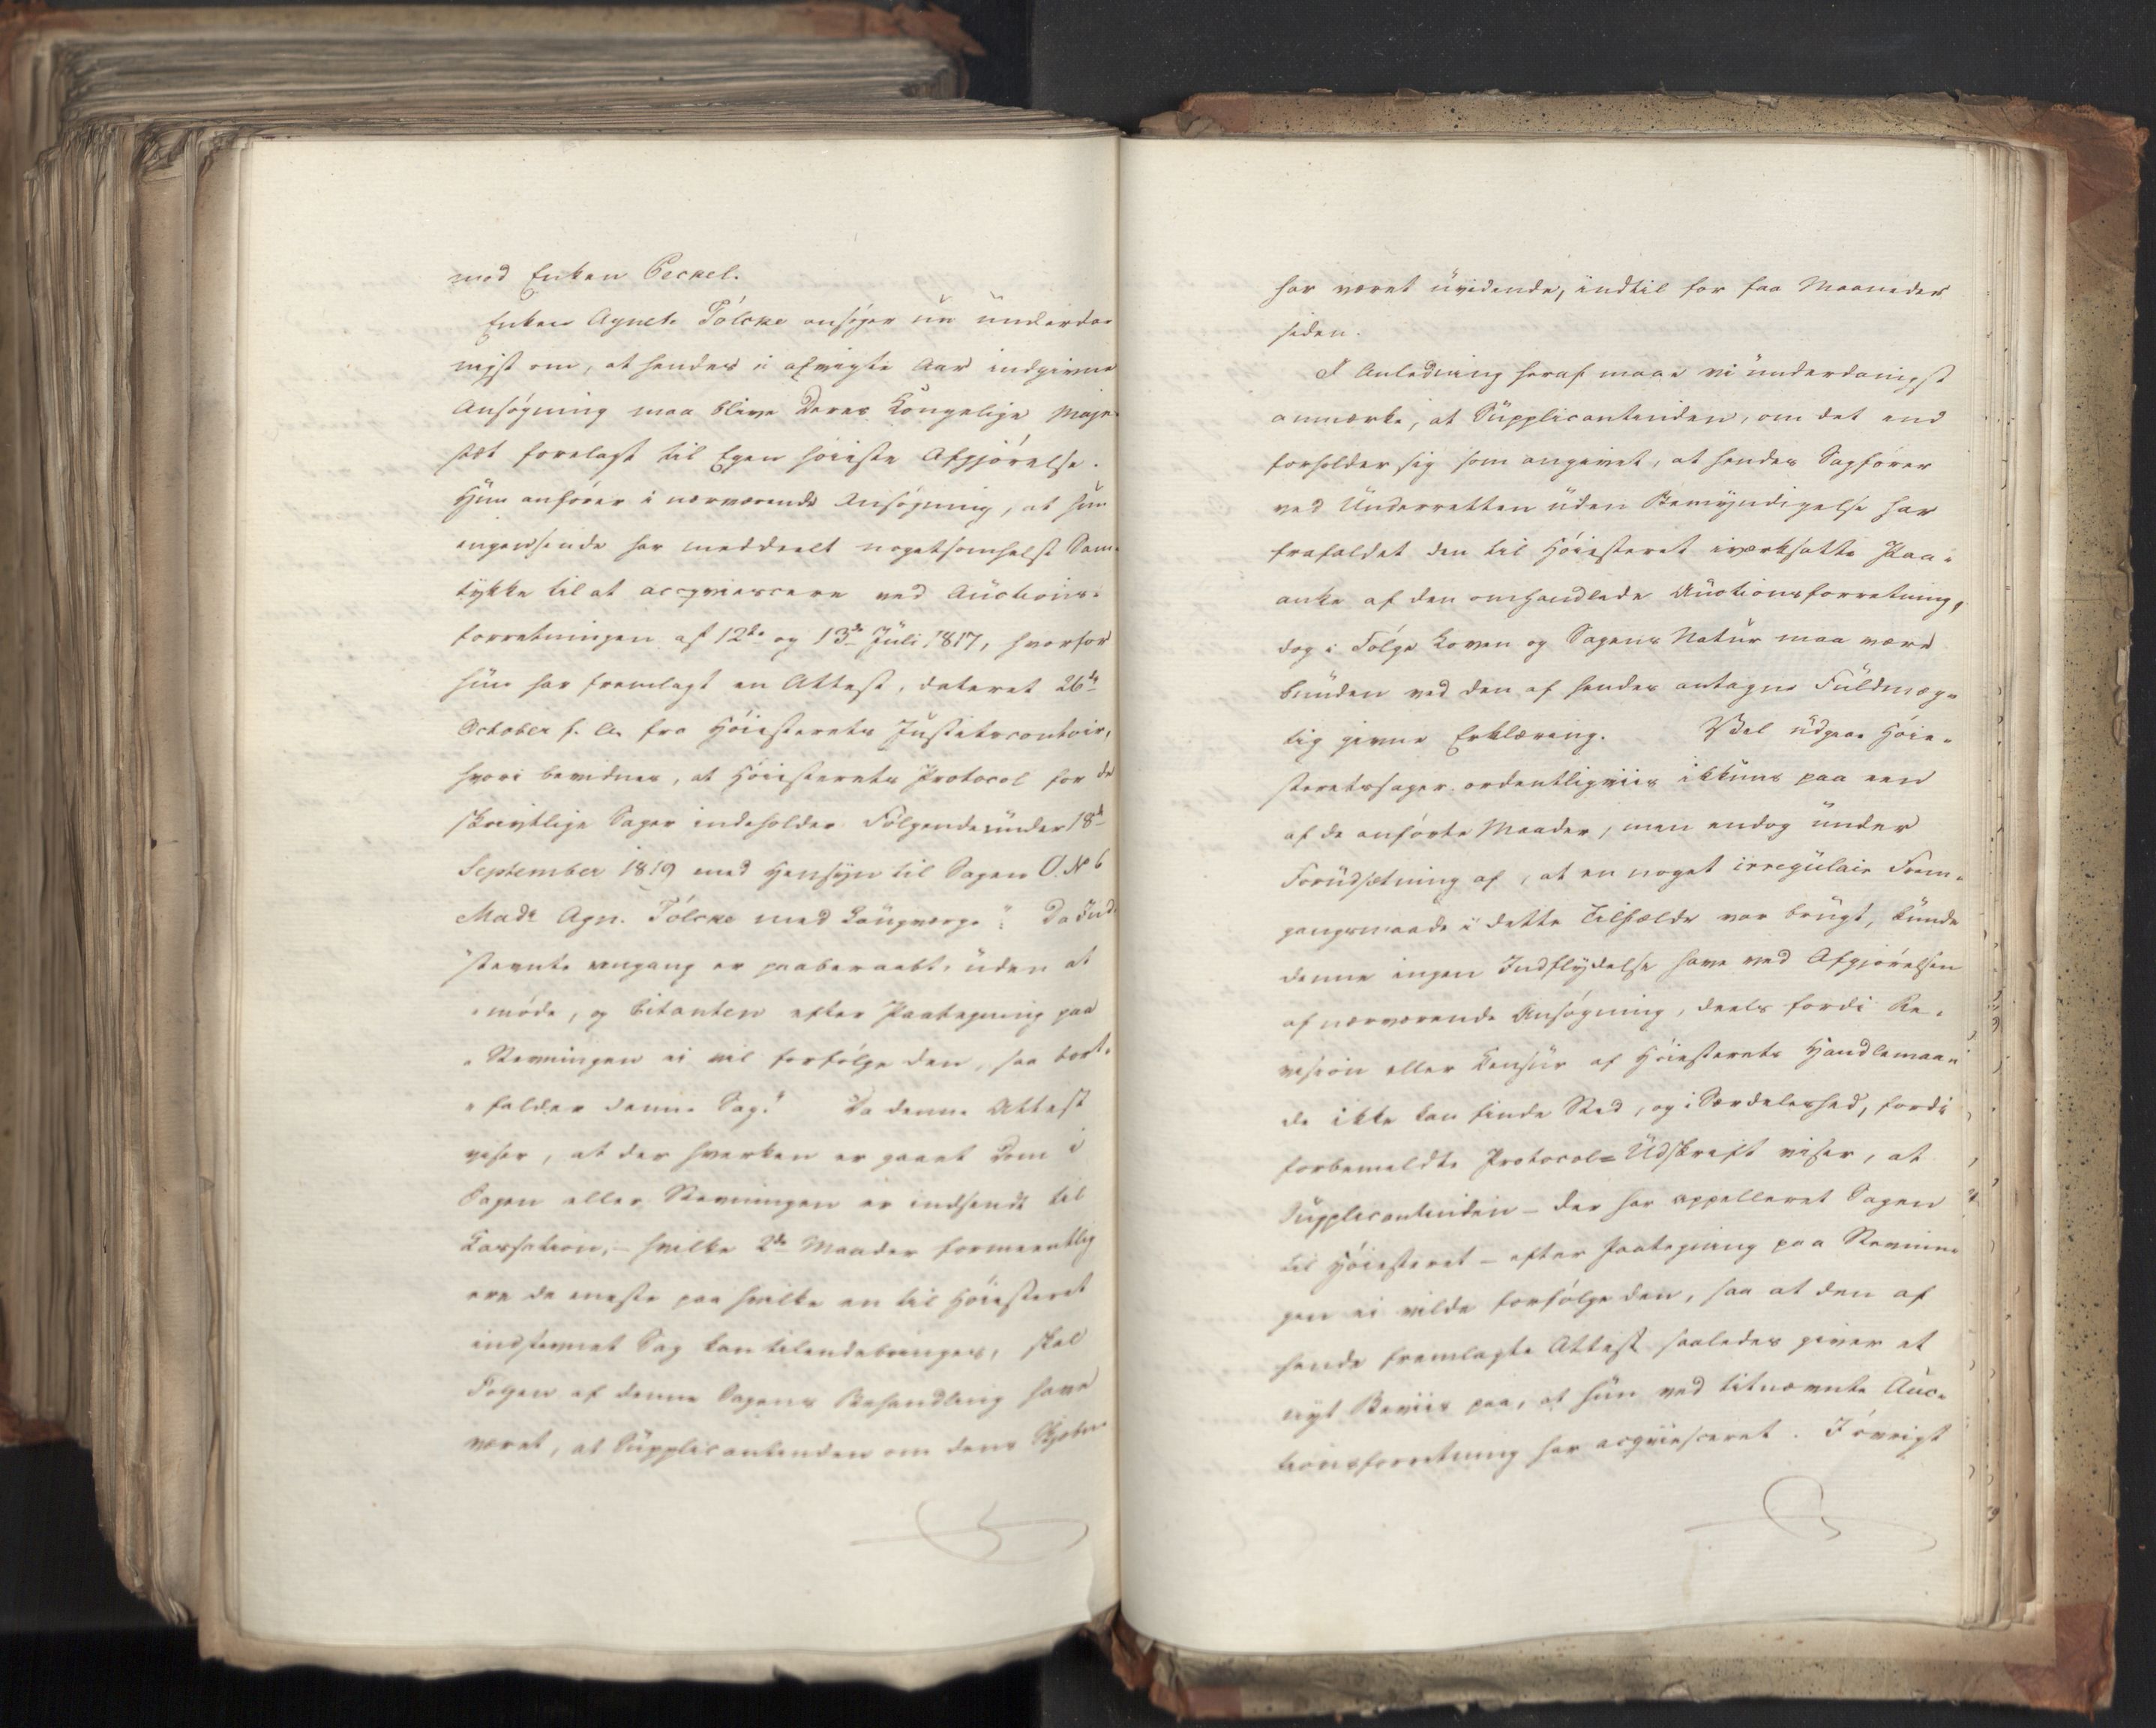 mod Enken Beckel.
Enken Agnete Tölcke ansöger nu underda-
nigst om, at hendes i afvigte Aar indgivne
Ansögning maa blive Deres Kongelige Maje-
stæt forelagt til Egen höieste Afgjörelse.
Hun anförer i nærværende Ansögning, at hun
ingensinde har meddeelt nogetsomhelst Sam-
tykke til at acqviescere ved Auctions-
forretningen af 12te og 13de Juli 1817, hvorfor
hun har fremlagt en Attest, dateret 26de
October f. A. fra Höiesterets Justitscontoir,
hvori bevidnes, at Höiesterets Protocol for de
skrivtlige Sager indeholder Fölgende under 18de
September 1819 med Hensyn til Sagen O. No 6
Made Agn. Tölcke med Laugværge: "Da Ind-
"stevnte engang er paaberaabt, uden at
"möde, og Citanten efter Paategning paa
"Stevningen ei vil forfölge den, saa bort-
"falder denne Sag." Da denne Attest
viser, at der hverken er gaaet Dom i
Sagen eller Stevningen er indsendt til
Cassation, – hvilke 2de Maader formeentlig
ere de eneste paa hvilke en til Höiesteret
indstevnet Sag kan tilendebringes, skal
Fölgen af denne Sagens Behandling have
været, at Supplicantinden om dens Skjebne
har været uvidende, indtil for faa Maaneder
siden.
I Anledning heraf maae vi underdanigst
anmærke, at Supplicantinden, om det end
forholder sig som angivet, at hendes Sagförer
ved Underretten uden Bemyndigelse har
frafaldet den til Höiesteret iværksatte Paa-
anke af den omhandlede Auctionsforretning,
dog i Fölge Loven og Sagens Natur maa være
bunden ved den af hendes antagne Fuldmæg-
tig givne Erklæring. Vel udgaae Höie-
steretssager ordentligviis ikkuns paa een
af de anförte Maader, men endog under
Forudsætning af, at en noget irregulair Frem-
gangsmaade i dette Tilfælde var brugt, kunde
denne ingen Indflydelse have ved Afgjörelsen
af nærværende Ansögning, deels fordi Re-
vision eller Censur af Höiesterets Handlemaa-
de ikke kan finde Sted, og i Særdeleshed, fordi
forbemeldte Protocol-Udskrift viser, at
Supplicantinden – der har appelleret Sagen
til Höiesteret – efter Paategning paa Stevnin-
gen ei vilde forfölge den, saa at den af
hende fremlagte Attest saaledes giver et
nyt Beviis paa, at hun ved bitnævnte Auc-
tionsforretning har acqviesceret. I övrigt